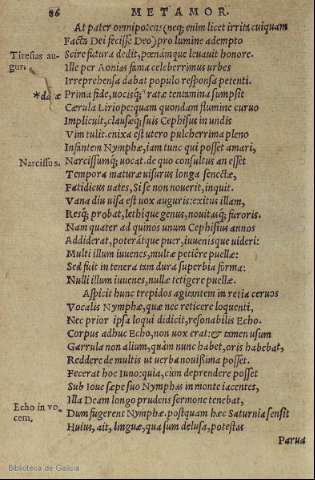 86 METAMOR.
At pater omnipotens (neq; enim licet irrita cuiquam
Facta Dei fecisse Deo) pro lumine adempto
Tiresias au-
gur.
Scire futura dedit, pœnamque leuauit honore.
Ille per Aonias fama celeberrimus urbes
Irreprehensa dabat populo responsa petenti.
Prima fide, uocisq; ratæ tentamina sumpsit
Cærula Liriope: quam quondam flumine curuo
Implicuit, clausæq; suis Cephisus in undis
Vim tulit. enixa est utero pulcherrima pleno
Infantem Nymphæ, iam tunc qui posset amari,
Narcissus.
Narcissumq; uocat. de quo consultus an esset
Tempora maturæ uisurus longa senectæ,
Fatidicus uates, Si se non nouerit, inquit.
Vana diu uisa est uox auguris: exitus illam,
Resq; probat, lethique genus, nouitasq; furoris.
Nam quater ad quinos unum Cephisius annos
Addiderat, poteratque puer, iuuenisque uideri:
Multi illum iuuenes, multæ petiêre puellæ:
Sed fuit in tenera tam dura superbia forma:
Nulli illum iuuenes, nullæ tetigere puellæ.
Aspicit hunc trepidos agitantem in retia ceruos
Vocalis Nymphæ, quæ nec reticere loquenti,
Nec prior ipsa loqui didicit, resonabilis Echo.
Corpus adhuc Echo, non uox erat: & tamen usum
Garrula non alium, quàm nunc habet, oris habebat,
Reddere de multis ut uerba nouissima posset.
Fecerat hoc Iuno: quia, cum deprendere posset
Sub Ioue sæpe suo Nymphas in monte iacentes,
Echo in vo-
cem.
Illa Deam longo prudens sermone tenebat,
Dum fugerent Nymphæ. postquam hæc Saturnia sensit
Huius, ait, linguæ, qua sum delusa, potestas
Parua
Biblioteca de Galicia